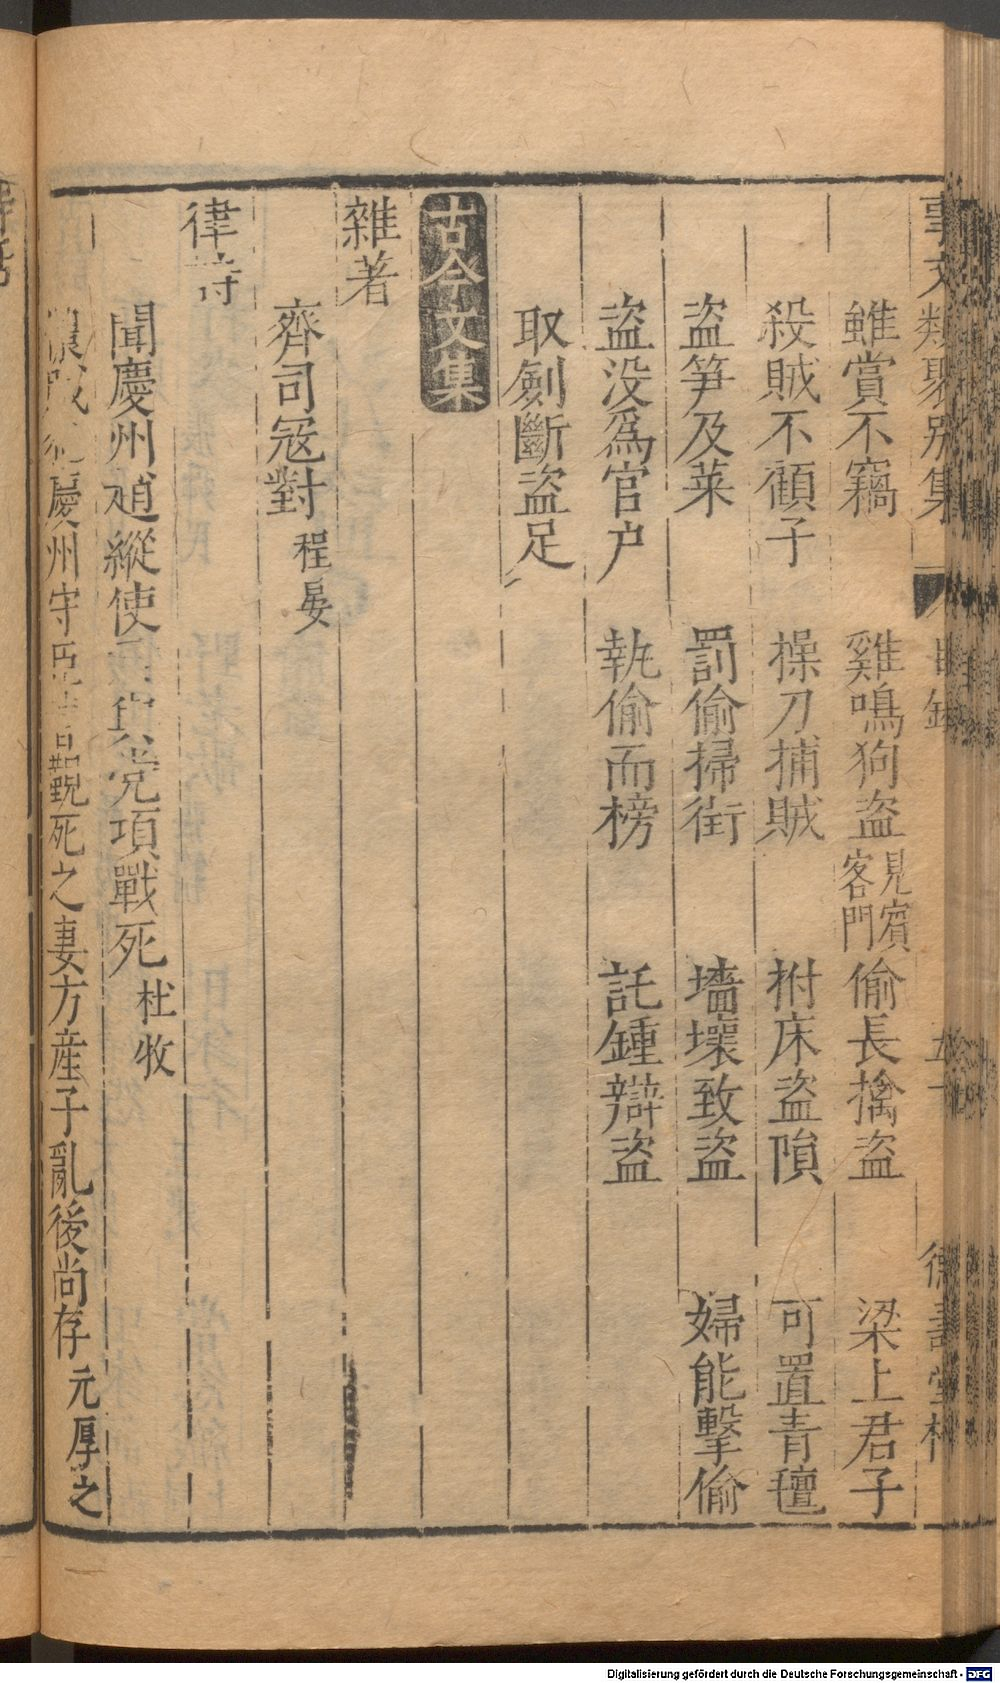 事文類聚別集 目錄 五十 德壽堂梓
雖賞不竊 雞鳴狗盜 見賓客門 偷長擒盜 梁上君子
殺賊不顧子 操刀捕賊 拊床盜隕 可置青氊
盜笋及菜 罰偷掃街 墻壞致盜 婦能擊偷
盜没爲官户 執偷而榜 託鍾辯盜
取劍斷盜足
古今文集
雜著
齊司冦對 程晏
律詩
聞慶州趙縱使君與党項戰死 杜收
慶州守死之妻方産子亂後尚存 元厚之
Digitalisierung gefördert durch die Deutsche Forschungsgemeinschaft - DFG